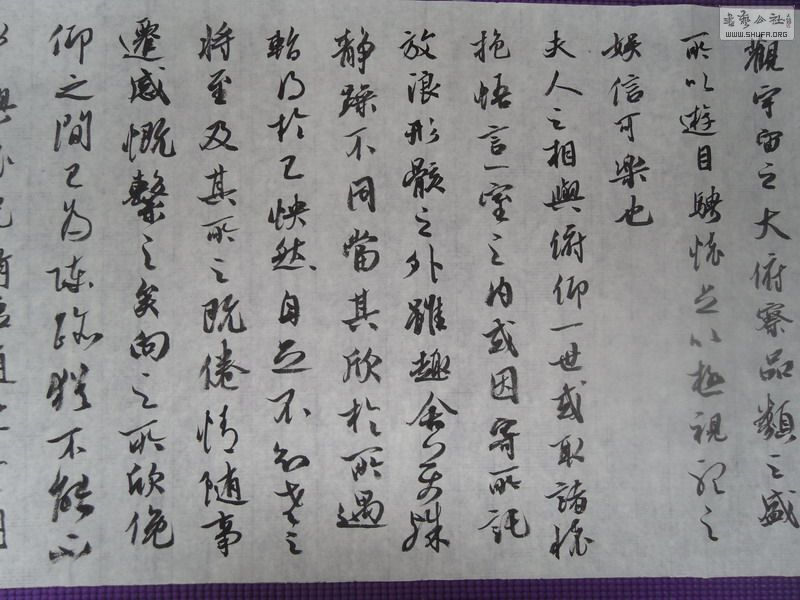 觀宇宙之大俯察品類之盛
所以遊目騁懷足以極視聽之
娛信可樂也
夫人之相與俯仰一世或取諸懷
抱悟言一室之內或因寄所託
放浪形骸之外雖趣舍万殊
靜躁不同當其欣於所遇
暫得於己怏然自足不知老之
將至及其所之既倦情随事
遷感慨繫之矣向之所欣俛
仰之間已為陳跡猶不能不
書藝公社
WWW.SHUFA.ORG